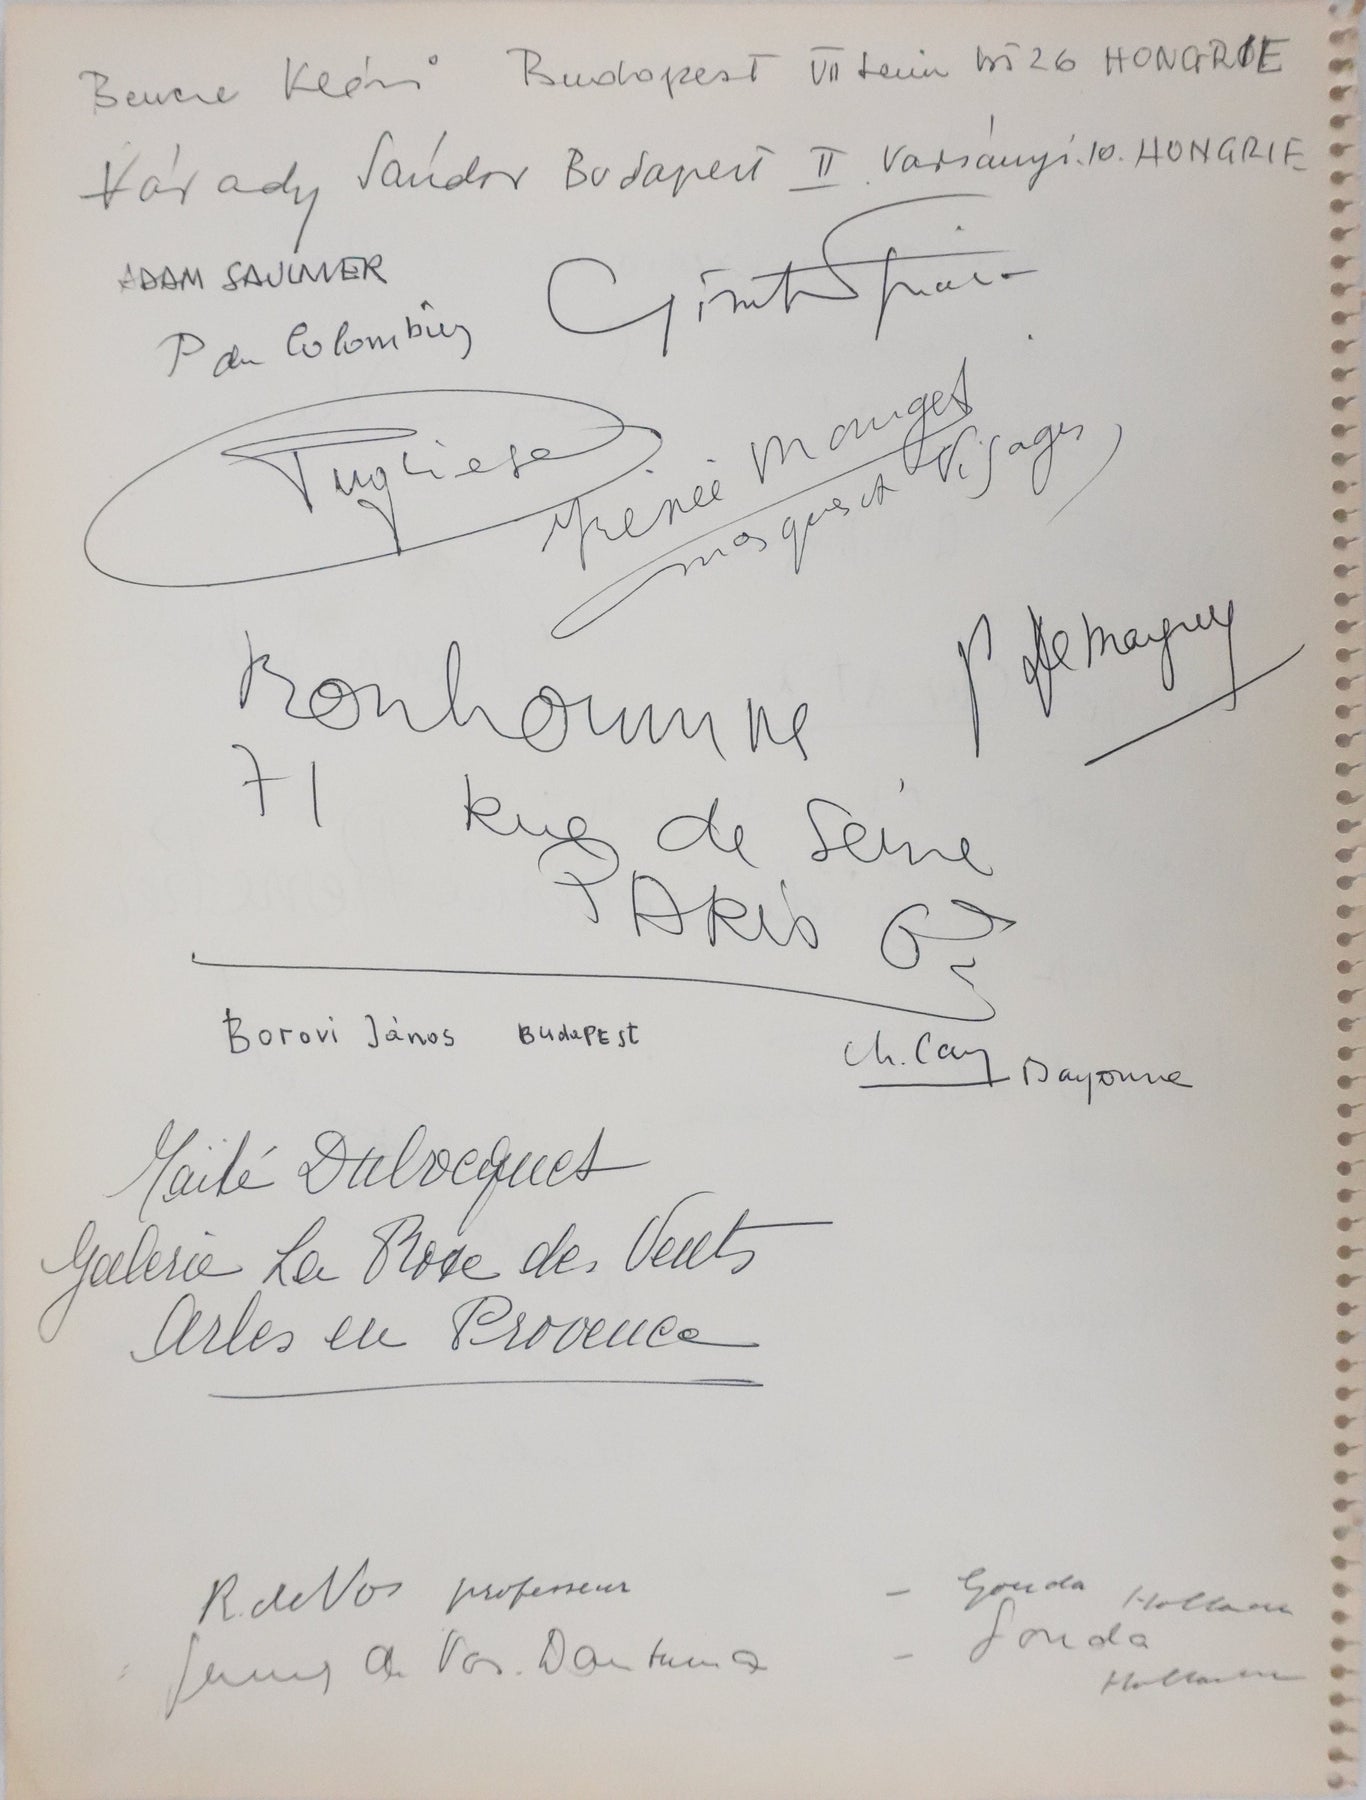 Bencze Klári Budapest VII Lenin krt 26 HONGRIE
Várady Sándor Budapest II. Varsányi. 10. HONGRIE
ADAM SAULNIER
P du Colombier
Pugliese
Irénée Mauget
masques et Visages
P Demagny
Bonhomme
71 Rue de Seine
PARIS 6
Borovi János BUdaPESt
Ch. Bayonne
Maïté Dulocques
Galerie La Rose des Vents
Arles en Provence
R. de Vos professeur - Gouda Holland
de Vos. Dantuma - Gouda
Holland